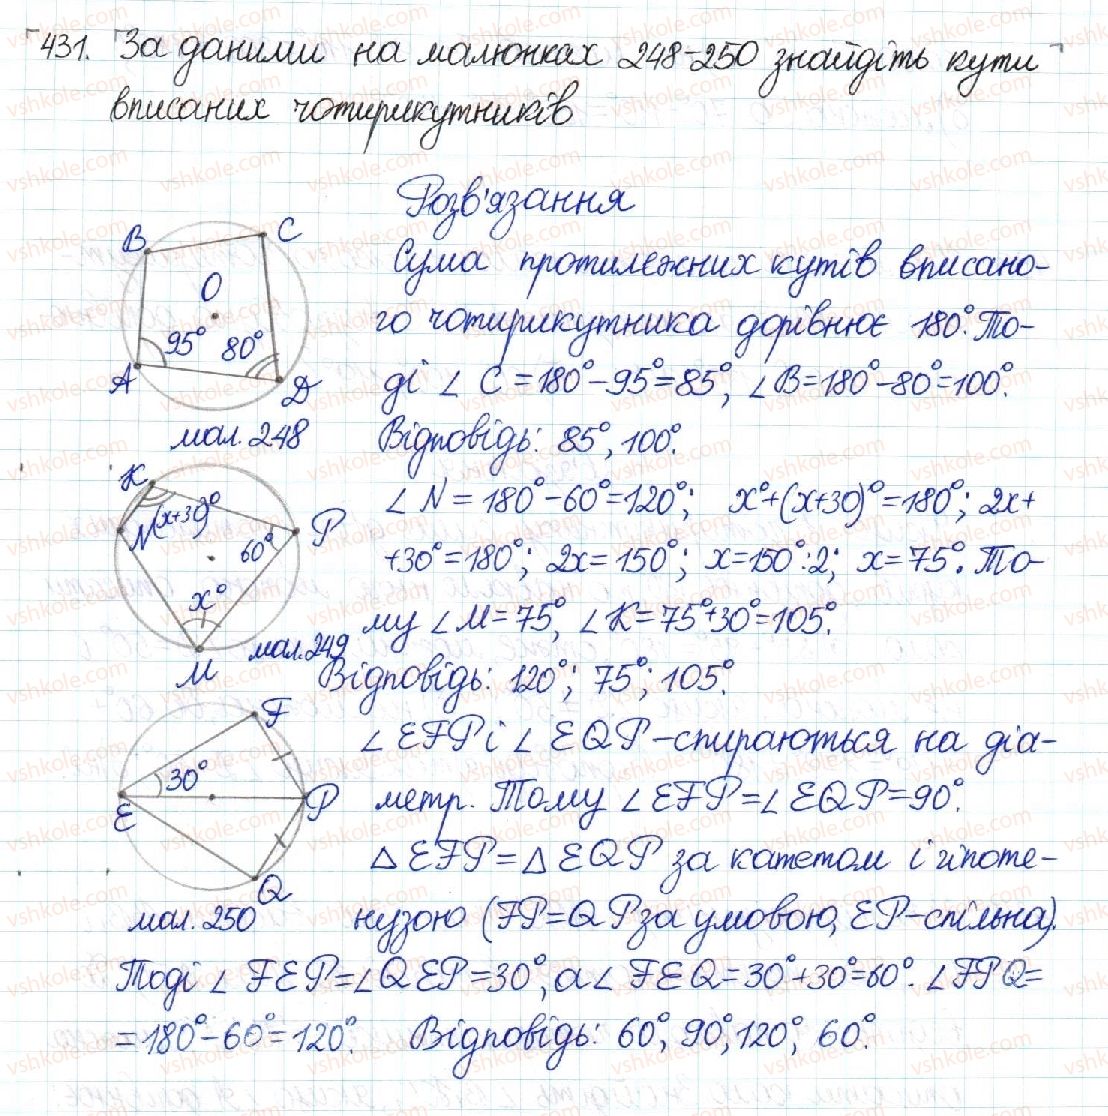 431. За даними на малюнках 248-250 знайдіть кути
вписаних чотирикутників
Розв'язання
B C
O
95° 80°
A D
мал. 248
Сума протилежних кутів вписано-
го чотирикутника дорівнює 180°. То-
ді ∠C = 180° - 95° = 85°, ∠B = 180° - 80° = 100°.
Відповідь: 85°, 100°.
K
N (x+30)° P
60°
x°
M
мал. 249
∠N = 180° - 60° = 120°; x° + (x+30)° = 180°; 2x +
+ 30° = 180°; 2x = 150°; x = 150° : 2; x = 75°. То-
му ∠M = 75°, ∠K = 75° + 30° = 105°.
Відповідь: 120°; 75°; 105°.
F
30°
E P
Q
мал. 250
∠EFP і ∠EQP - спираються на діа-
метр. Тому ∠EFP = ∠EQP = 90°.
△EFP = △EQP за катетом і гіпоте-
нузою (FP = QP за умовою, EP - спільна).
Тоді ∠FEP = ∠QEP = 30°, а ∠FEQ = 30° + 30° = 60°. ∠FPQ =
= 180° - 60° = 120°. Відповідь: 60°, 90°, 120°, 60°.
vshkole.com